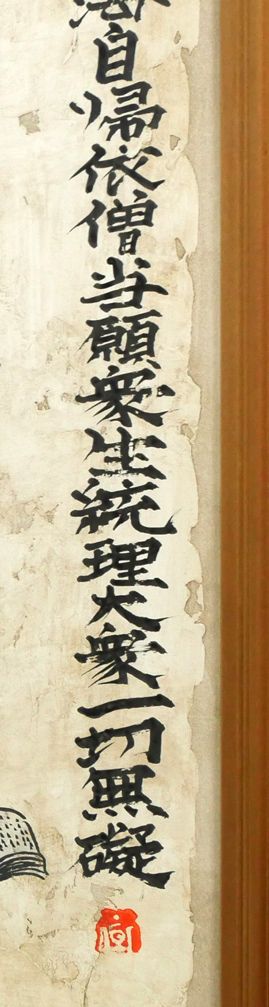 海自帰依僧当願衆生統理大衆一切無礙